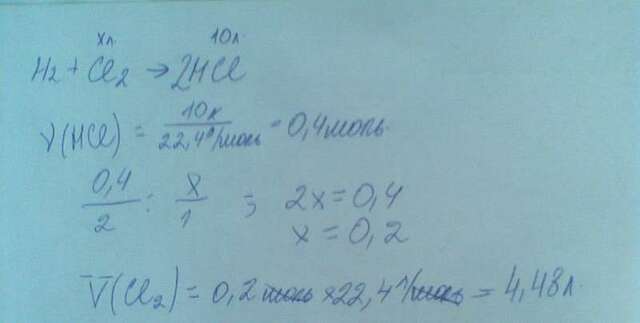 xл 10л
H2 + Cl2 → 2HCl
ν(HCl) = 10л / 22,4л/моль = 0,4моль.
0,4/2 : x/1 ; 2x = 0,4
x = 0,2
V(Cl2) = 0,2 моль × 22,4 л/моль = 4,48л.